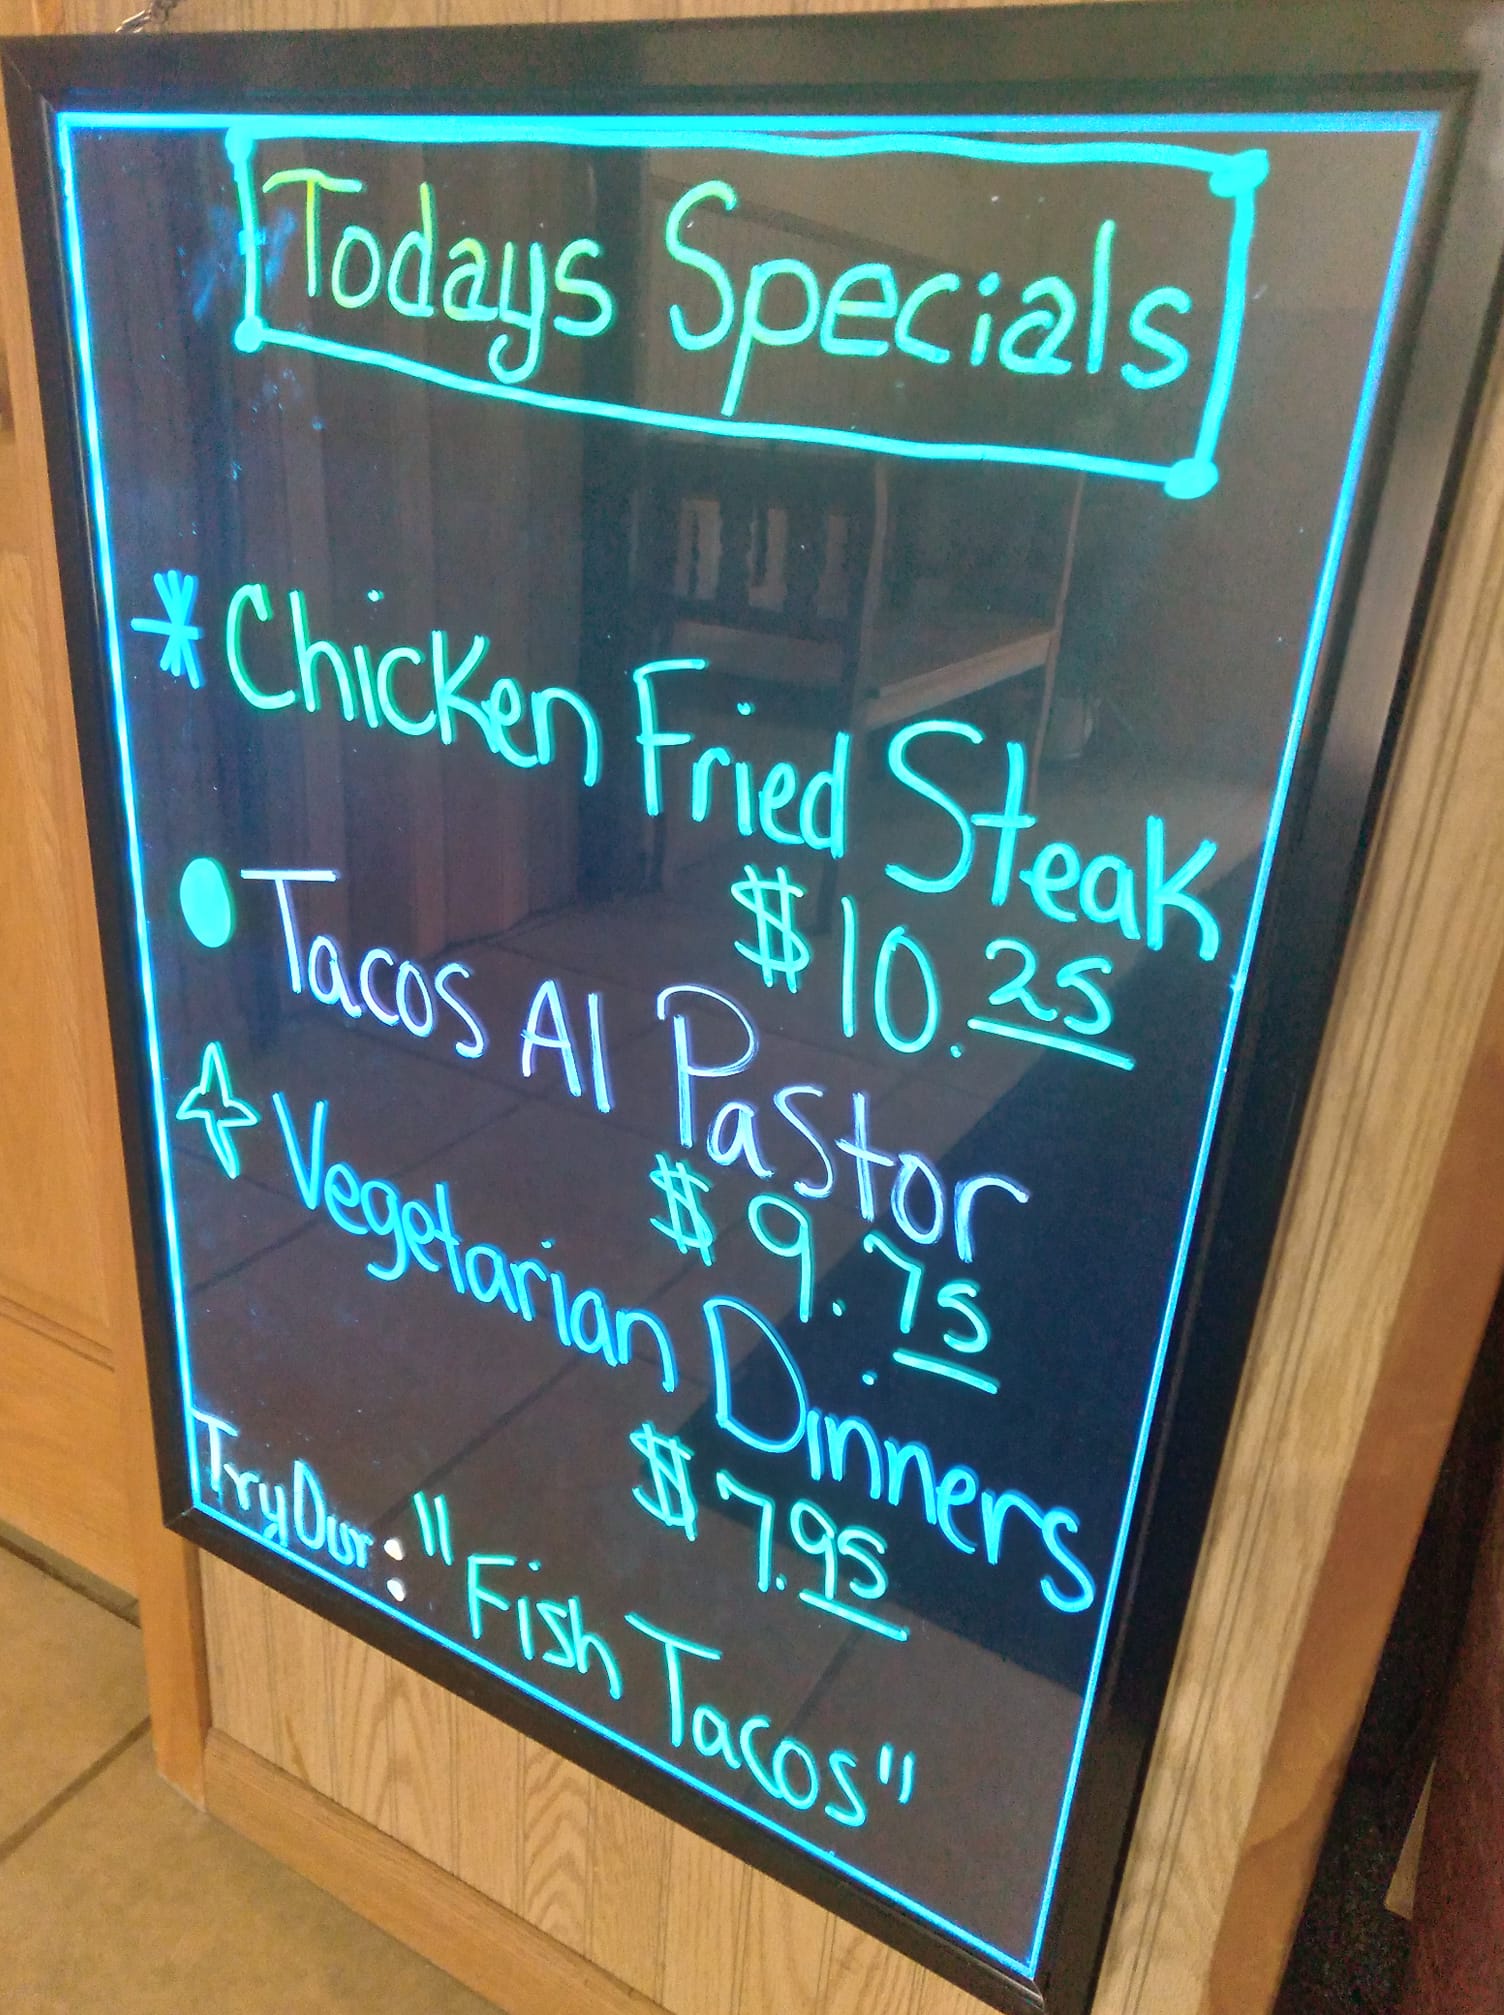 Todays Specials
Chicken Fried Steak
$10.25
Tacos Al Pastor
$9.75
Vegetarian Dinners
$7.95
Try Our: "Fish Tacos"